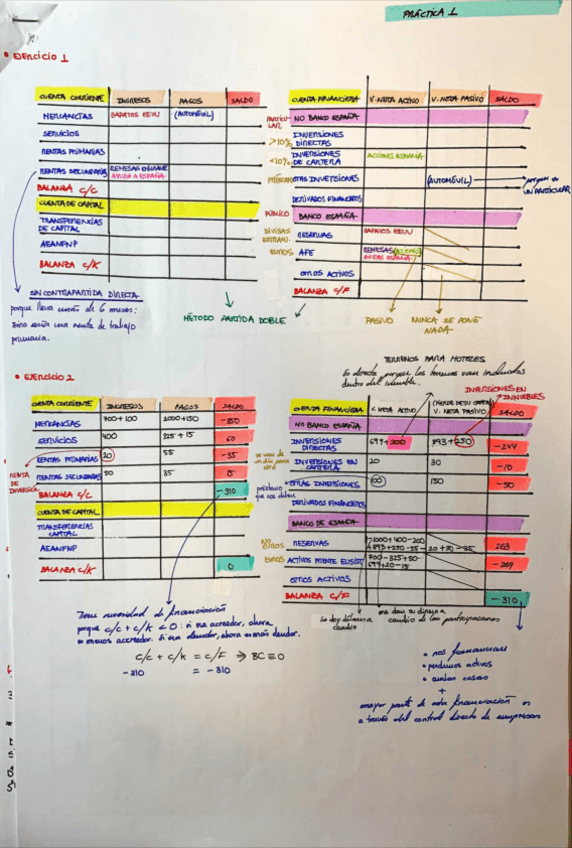 PRÁCTICA 1
• EJERCICIO 1
CUENTA CORRIENTE INGRESOS PAGOS SALDO
MERCANCÍAS ZAPATOS EEUU (AUTOMÓVIL)
SERVICIOS
RENTAS PRIMARIAS
RENTAS SECUNDARIAS REMESAS
AYUDA A ESPAÑA
BALANZA C/C
CUENTA DE CAPITAL
TRANSFERENCIAS
DE CAPITAL
AEANFNP
BALANZA C/K
SIN CONTRAPARTIDA DIRECTA
porque lleva menos de 6 meses:
sino sería una renta de trabajo
primaria.
MÉTODO PARTIDA DOBLE
CUENTA FINANCIERA V. NETA ACTIVO V. NETA PASIVO SALDO
PARTICULAR NO BANCO ESPAÑA
>10% INVERSIONES
DIRECTAS
<10% INVERSIONES
DE CARTERA ACCIONES ALEMANIA
PRÉSTAMOS OTRAS INVERSIONES (AUTOMÓVIL) porque es
UN PARTICULAR
DERIVADOS FINANCIEROS
PÚBLICO BANCO ESPAÑA
DIVISAS
EXTRANJ. RESERVAS ZAPATOS EEUU
EUROS AFE REMESAS (ACCIONES)
AYUDAS ESPAÑA
OTROS ACTIVOS
BALANZA C/F
PASIVO NUNCA SE PONE
NADA
• EJERCICIO 2
CUENTA CORRIENTE INGRESOS PAGOS SALDO
MERCANCÍAS 700+100 1000+150 -350
SERVICIOS 400 325+15 60
RENTAS PRIMARIAS 20 55 -35
RENTAS SECUNDARIAS 50 35 15
RENTA
DE INVERSIÓN
BALANZA C/C -310
CUENTA DE CAPITAL
TRANSFERENCIAS
CAPITAL
AEANFNP
BALANZA C/K 0
Tiene necesidad de financiación
porque c/c + c/k < 0: si era acreedor, ahora
es menos acreedor. Si era deudor, ahora es más deudor.
C/C + C/K = C/F ⇒ BC = 0
-310 = -310
TERRENOS PARA HOTELES
Es directa porque los terrenos van incluidos
dentro del inmueble.
INVERSIONES EN
INMUEBLES
CUENTA FINANCIERA V. NETA ACTIVO V. NETA PASIVO SALDO
NO BANCO ESPAÑA
INVERSIONES
DIRECTAS 699+200 893+250 -244
INVERSIONES EN
CARTERA 20 30 -10
préstamo
que nos deben
OTRAS INVERSIONES 100 150 -50
DERIVADOS FINANCIEROS
BANCO DE ESPAÑA
NO
EUROS RESERVAS 263
EUROS ACTIVOS FRENTE EUSIST. 700-325+50
699+20-15 -269
OTROS ACTIVOS
BALANZA C/F -310
me dan su dinero a
cambio de las participaciones
• nos financian
• perdemos activos
+
mayor parte de esta financiación es
a través del control directo de empresas